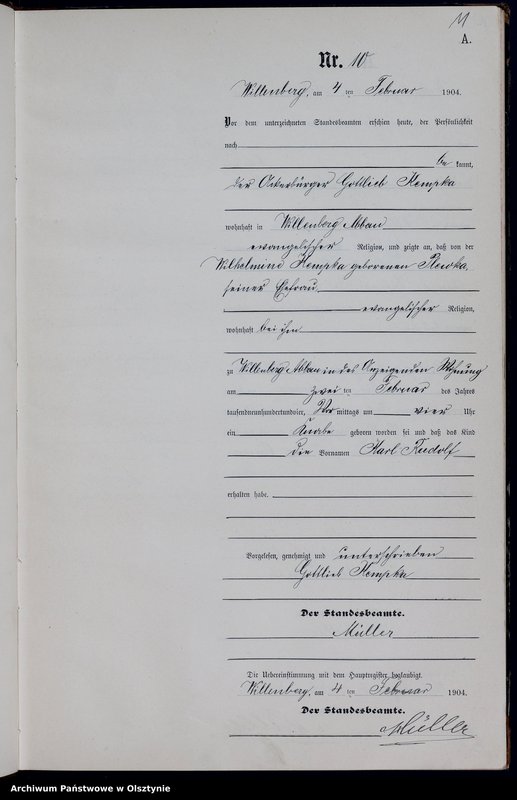 11
A.
Nr. 10
Willenberg, am 4 ten Februar 1904.
Vor dem unterzeichneten Standesbeamten erschien heute, der Persönlichkeit
nach
be kannt,
der Ackerbürger Gottlieb Kempka
wohnhaft in Willenberg Abbau
evangelischer Religion, und zeigte an, daß von der
Wilhelmine Kempka geborenen Plewka,
seiner Ehefrau
evangelischer Religion,
wohnhaft bei ihm
zu Willenberg Abbau in des Anzeigenden Wohnung
am zwei ten Februar des Jahres
tausendneunhundertundvier, Vor mittags um vier Uhr
ein Knabe geboren worden sei und daß das Kind
die Vornamen Karl Rudolf
erhalten habe.
Vorgelesen, genehmigt und unterschrieben
Gottlieb Kempka
Der Standesbeamte.
Müller
Die Uebereinstimmung mit dem Hauptregister beglaubigt.
Willenberg, am 4 ten Februar 1904.
Der Standesbeamte.
Müller
Archiwum Państwowe w Olsztynie